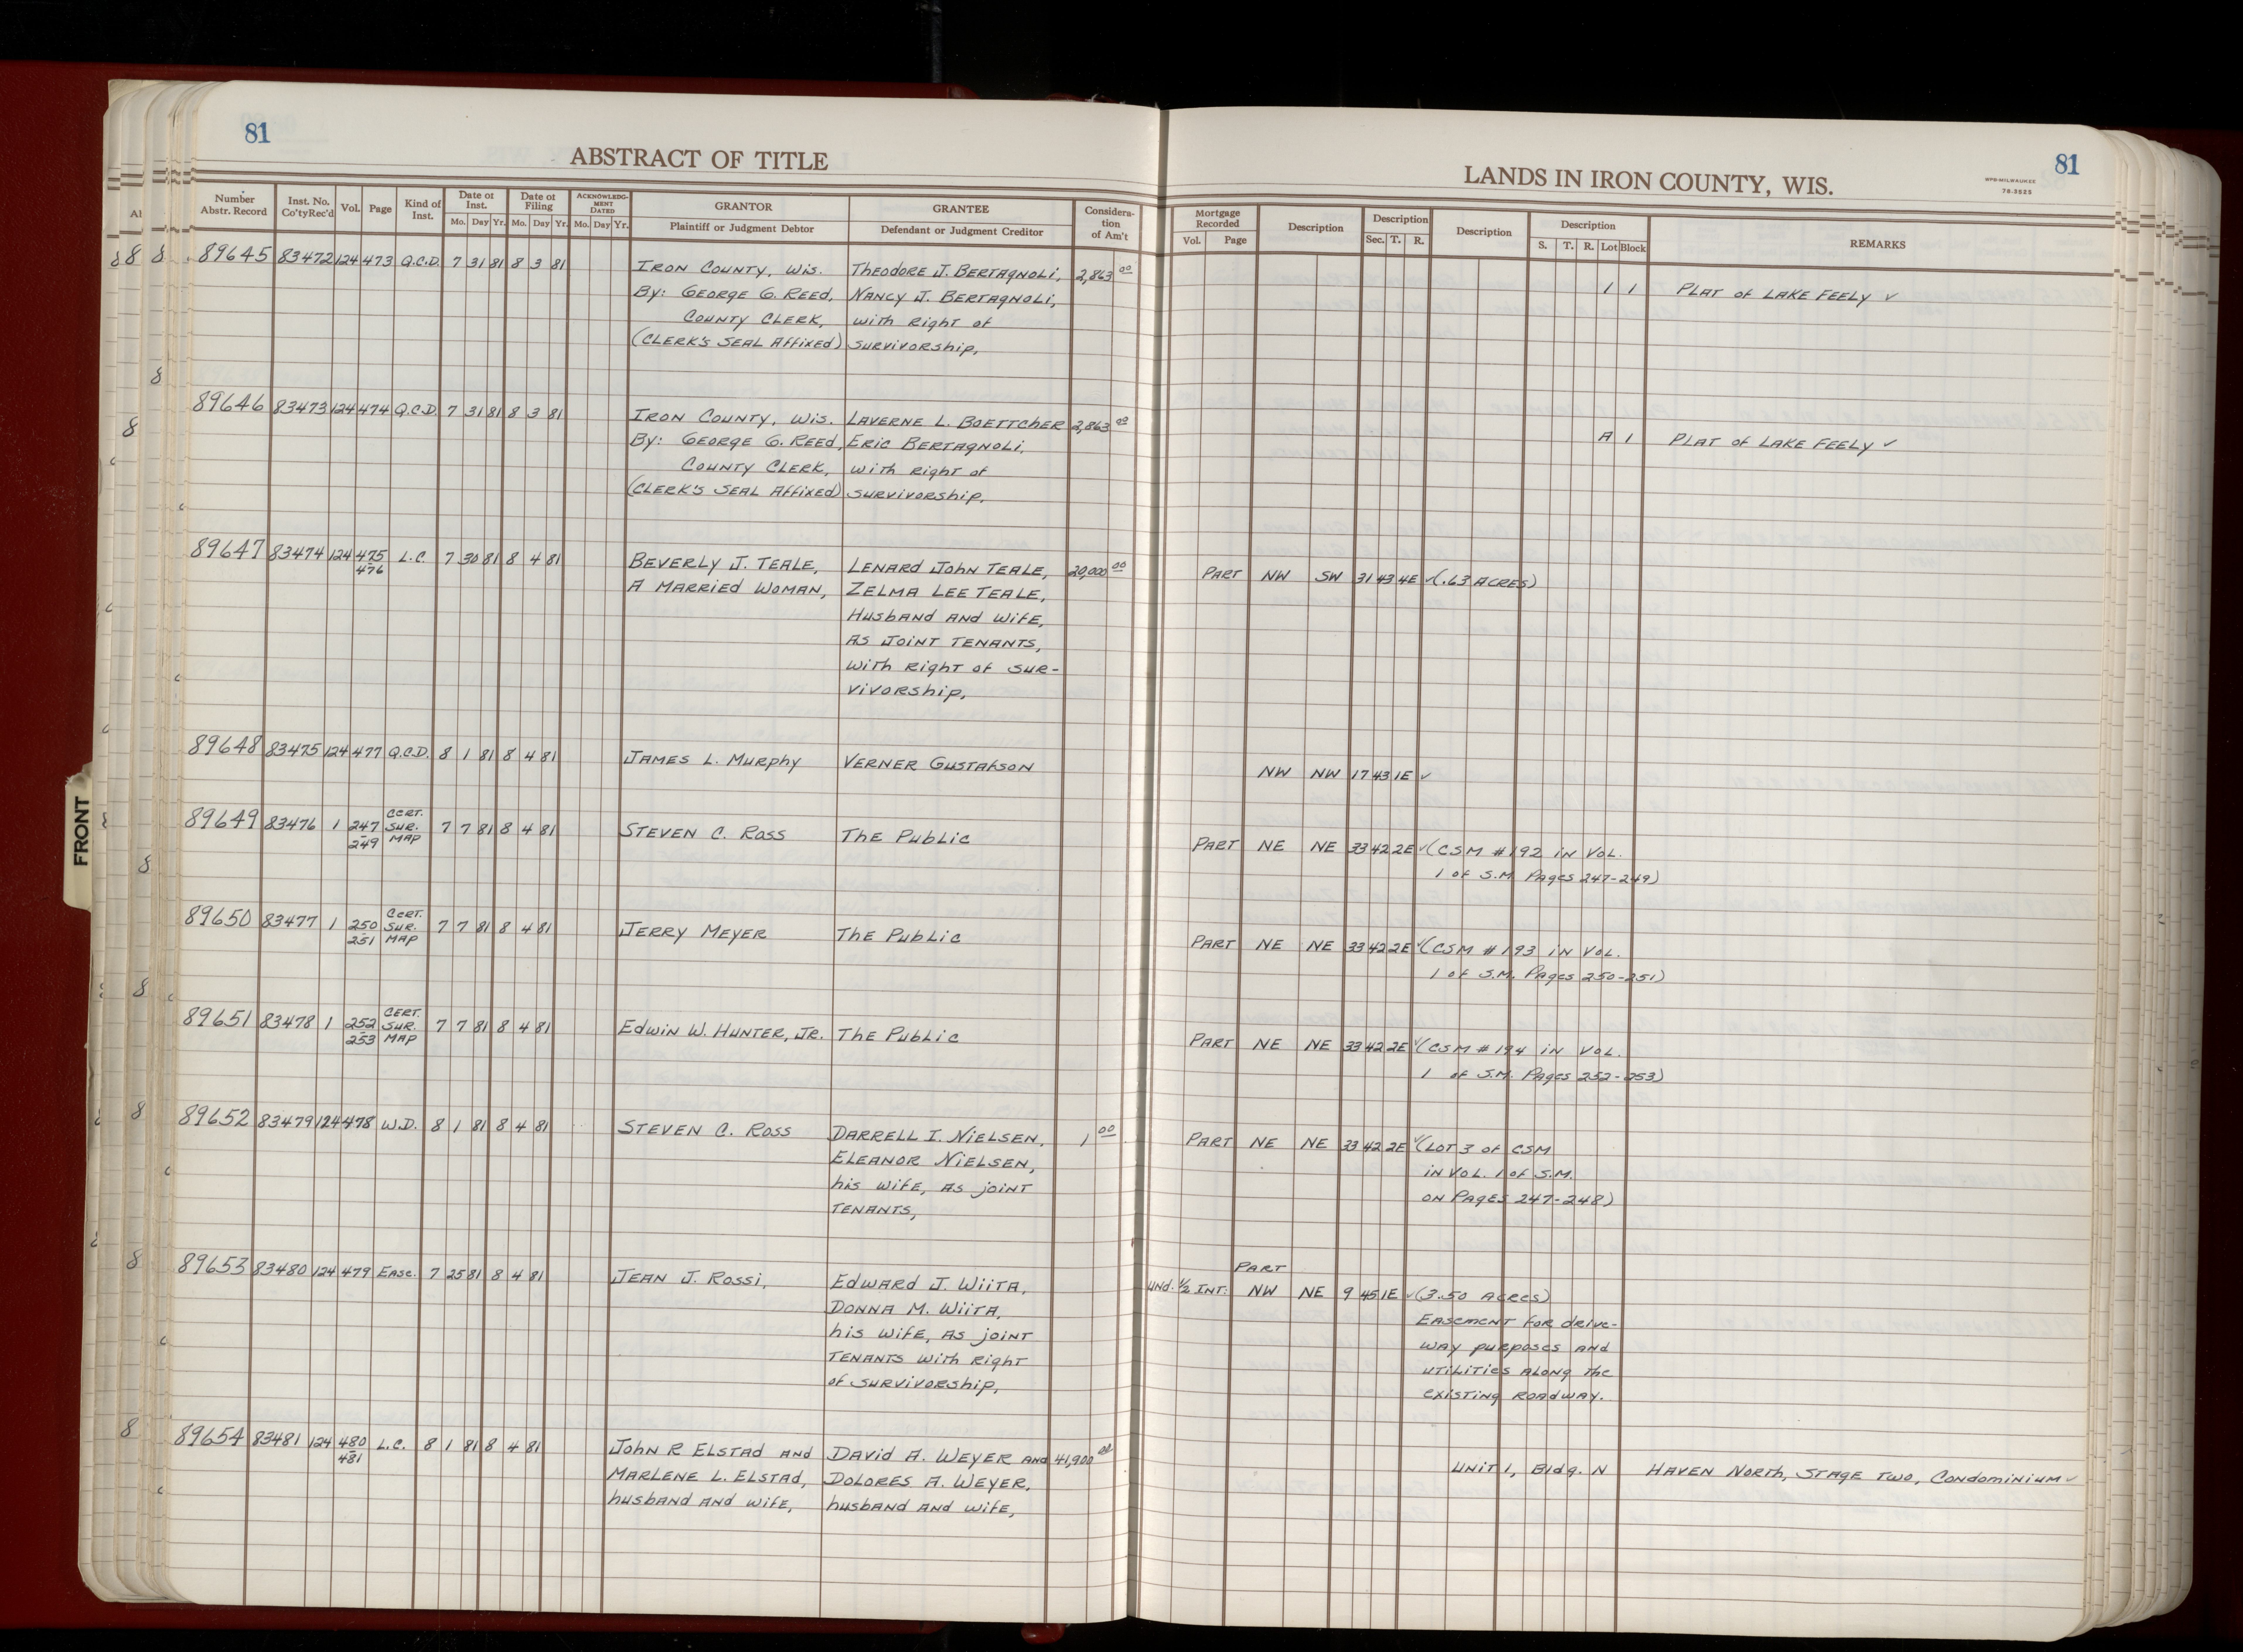 81
ABSTRACT OF TITLE
Number Abstr. Record Inst. No. Co'ty Rec'd Vol. Page Kind of Inst. Date of Inst. Mo. Day Yr. Date of Filing Mo. Day Yr. ACKNOWLEDGMENT DATED Mo. Day Yr. GRANTOR Plaintiff or Judgment Debtor GRANTEE Defendant or Judgment Creditor Consideration of Am't
89645 83472 124 473 Q.C.D. 7 31 81 8 3 81
IRON COUNTY, WIS. THEODORE J. BERTAGNOLI, 2,863 00
BY: GEORGE G. REED, NANCY J. BERTAGNOLI,
COUNTY CLERK, WITH RIGHT OF
(CLERK'S SEAL AFFIXED) SURVIVORSHIP,
89646 83473 124 474 Q.C.D. 7 31 81 8 3 81
IRON COUNTY, WIS. LAVERNE L. BOETTCHER 2,863 00
BY: GEORGE G. REED, ERIC BERTAGNOLI,
COUNTY CLERK, WITH RIGHT OF
(CLERK'S SEAL AFFIXED) SURVIVORSHIP,
89647 83474 124 475-476 L.C. 7 30 81 8 4 81
BEVERLY J. TEALE, LENARD JOHN TEALE, 20,000 00
A MARRIED WOMAN, ZELMA LEE TEALE,
HUSBAND AND WIFE,
AS JOINT TENANTS,
WITH RIGHT OF SUR-
VIVORSHIP,
89648 83475 124 477 Q.C.D. 8 1 81 8 4 81
JAMES L. MURPHY VERNER GUSTAFSON
89649 83476 1 247-249 CERT. SUR. MAP 7 7 81 8 4 81
STEVEN C. ROSS THE PUBLIC
89650 83477 1 250-251 CERT. SUR. MAP 7 7 81 8 4 81
JERRY MEYER THE PUBLIC
89651 83478 1 252-253 CERT. SUR. MAP 7 7 81 8 4 81
EDWIN W. HUNTER, JR. THE PUBLIC
89652 83479 124 478 W.D. 8 1 81 8 4 81
STEVEN C. ROSS DARRELL I. NIELSEN, 1 00
ELEANOR NIELSEN,
HIS WIFE, AS JOINT
TENANTS,
89653 83480 124 479 EASE. 7 25 81 8 4 81
JEAN J. ROSSI, EDWARD J. WIITA,
DONNA M. WIITA,
HIS WIFE, AS JOINT
TENANTS WITH RIGHT
OF SURVIVORSHIP,
89654 83481 124 480-481 L.C. 8 1 81 8 4 81
JOHN R ELSTAD AND DAVID A. WEYER AND 41,900 00
MARLENE L. ELSTAD, DOLORES A. WEYER,
HUSBAND AND WIFE, HUSBAND AND WIFE,
FRONT
81
LANDS IN IRON COUNTY, WIS.
WPB-MILWAUKEE
76-3525
Mortgage Recorded Vol. Page Description Description Sec. T. R. Description Description S. T. R. Lot Block REMARKS
1 1 PLAT OF LAKE FEELY ✓
A 1 PLAT OF LAKE FEELY ✓
PART NW SW 31 43 4E ✓ (.63 ACRES)
NW NW 17 43 1E ✓
PART NE NE 33 42 2E ✓ (CSM #192 IN VOL.
1 OF S.M. PAGES 247-249)
PART NE NE 33 42 2E ✓ (CSM #193 IN VOL.
1 OF S.M. PAGES 250-251)
PART NE NE 33 42 2E ✓ (CSM #194 IN VOL.
1 OF S.M. PAGES 252-253)
PART NE NE 33 42 2E ✓ (LOT 3 OF CSM
IN VOL. 1 OF S.M.
ON PAGES 247-248)
PART
UND. 1/2 INT. NW NE 9 45 1E ✓ (3.50 ACRES)
EASEMENT FOR DRIVE-
WAY PURPOSES AND
UTILITIES ALONG THE
EXISTING ROADWAY.
UNIT 1, BLDG. N HAVEN NORTH, STAGE TWO, CONDOMINIUM ✓